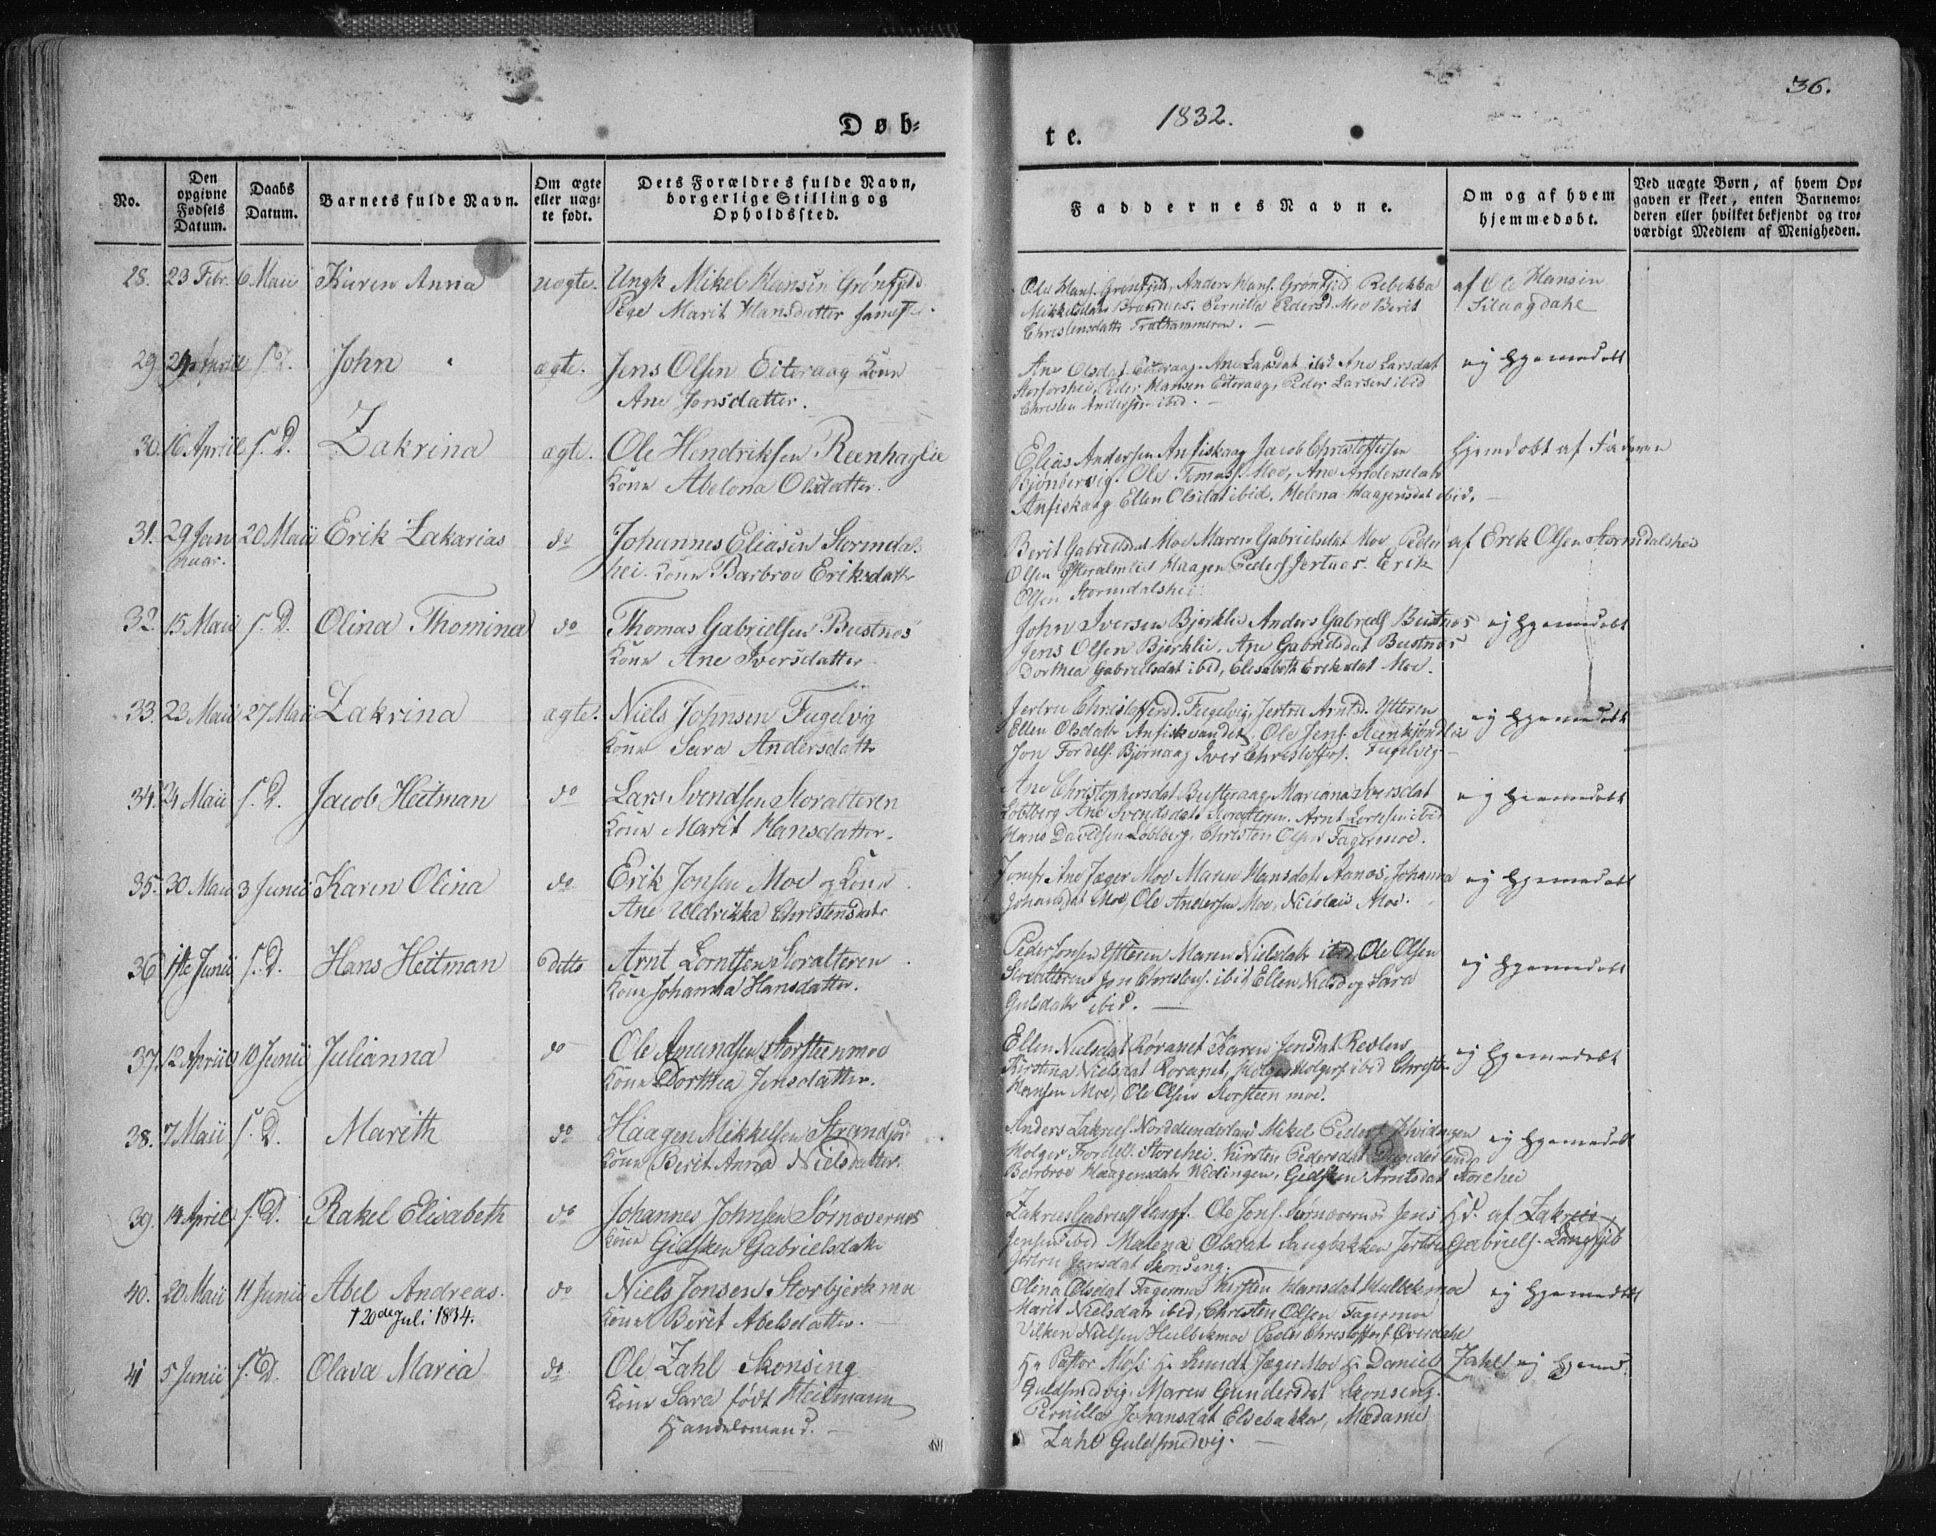 36.
1832.
Døb-
te.
No.
Den opgivne Fødsels Datum.
Daabs Datum.
Barnets fulde Navn.
Om ægte eller uægte født.
Dets Forældres fulde Navn, borgerlige Stilling og Opholdssted.
Faddernes Navne.
Om og af hvem hjemmedøbt.
Ved uægte Børn, af hvem Opgaven er skeet, enten Barnemoderen eller hvilket bekjendt og troværdigt Medlem af Menigheden.
28. 23 Febr. 6 Maii Karen Anna uægte. Ungk Mikel Hansen Grønfjeld
Pige Marit Hansdatter
Ole Hans. Grønfjeld, Anders Hans. Grønfjeld Rebekka
Mikkelsdatr Pernille Pedersd. Moe Berit
Christensdattr Træthammeren. —
af Ole Hansen
29 Apriil s. D. John ægte. Jens Olsen Eiteraag Kone
Ane Jonsdatter.
Ane Olsdat Eiteraag. Ane Larsdat ibid Ane Larsdat
Storforshei, Peder Hansen Eiteraag, Peder Larsens ibid
Christen Andersen ibid. —
ej hjemmedøbt
30. 16 Apriil s. D. Zakrina ægte. Ole Hendriksen Reenhaglie
Kone Abelona Olsdatter.
Elias Andersen Anfiskaag Jacob Christoffersen
Bjønbervig. Ole Tomass. Moe, Ane Andersdatr
Anfiskaag Ellen Olsdat ibid, Helena Haagensdat ibid. —
hjemdøbt af Faderen
31. 29 Januar. 20 Maii Erik Zakarias do Johannes Eliasen Stormdals
hei. Kone Barbroe Eriksdattr
Berit Gabrielsdat Moe Maren Gabrielsdat Moe Peder
Olsen Haagen Peders Erik
Olsen Stormdalshei
af Erik Olsen Stormdalshei
32. 15 Maii s. D. Olina Thomina do Thomas Gabrielsen Bustnes
Kone Ane Iversdatter
John Iversen Bjerklie Anders Gabriels Bustnes
Jens Olsen Bjerklie, Ane Gabrielsdat Bustnes
Dorthea Gabrielsdat ibid, Elisabeth Eriksdat Moe.
ej hjemmedøbt
33. 23 Maii 27 Maii Zakrina ægte. Niels Johnsen Fugelvig
Kone Sara Andersdattr
Jertru Christoffersd. Fugelvig, Jertru Arntsd. Ytteren
Ellen Olsdatr Anfiskvandet, Ole Jens.
Jon Tordels. Bjørnaag Iver Christoffers. Fugelvig —
ej hjemmedøbt
34. 24 Maii s. D. Jacob Heitman do Lars Svendsen Storalteren
Kone Marit Hansdatter.
Ane Christophersdat Busteraag Mariana Iversdat
Ane Svendsdat Storalteren. Arnt Lorntsen ibid
Hans Davidsen Christen Olsen Fagermoe.
ej hjemmedøbt
35. 30 Maii 3 Junii Karen Olina do Erik Jonsen Moe og Kone
Ane Uldrikka Christensdatr
Jomfr Ane Jæger Moe Maren Hansdat Aanæs, Johanna
Johansdat Moe, Ole Andersen Moe, Nicolai Moe.
ej hjemmedøbt
36 1ste Junii s. D. Hans Heitman Ditto Arnt Lorntsen Storalteren
Kone Johanna Hansdatter.
Peder Jonsen Ytteren Maren Nielsdatr ibid, Ole Olsen
Storalteren Jon Christens. ibid Ellen Nielsd og Sara
ibid. —
ej hjemmedøbt
37. 12 Apriil 10 Junii Julianna do Ole Amundsen Storsteenmoe
Kone Dorthea Jensdatter.
Ellen Nielsdat Røvanet Karen Jensdat Revlen
Kirstina Nielsdat Røvanet, Holger Holgers ibid Christen
Hansen Moe, Ole Olsen Storsteenmoe.
ej hjemmedøbt
38. 7 Maii s. D. Marith do Haagen Mikkelsen Strandjord
Kone Berit Anna Nielsdatter.
Anders Zakries. Norddunderland Mikel Peders
Holger Tordels. Storhei. Kirsten Pedersdat Dunderland
Berbroe Haagensdatr Gidsken Arntsdat Storhei
ej hjemmedøbt
39. 14 April s. D. Rakel Elisabeth do Johannes Johnsen Sørnøvernes
Kone Gidsken Gabrielsdatr
Zakries Gabriels Ole Jons. Sørnøvernes Jens
Jensen ibid Malena Olsdat Langbakken
Jensdat Skonseng.
Hd. af Zakries
Gabriels.
40. 20 Maii 11 Junii Abel Andreas. do Niels Jonsen Storbjerkmoe
† 20de Juli 1834.
Kone Berit Abelsdatter. —
Olina Olsdat Fagermoe Kirsten Hansdat Hulbekmoe
Marit Nielsdatr ibid, Christen Olsen Fagermoe
Vilken Nielsen Hulbekmoe Peder Christoffers
ej hjemmedøbt
41 5 Junii s. D. Olava Maria do. Ole Zahl Skonseng
Kone Sara født Heitmann
Handelsmand. —
Hr Pastor Moss Hr Knudt Jæger Moe Hr Daniel Zahl
Guldsmedvig. Maren Gundersdat Skonseng.
Pernille Johansdat Elvebakken, Madame
Zahl Guldsmedvig. —
ej hjemd.